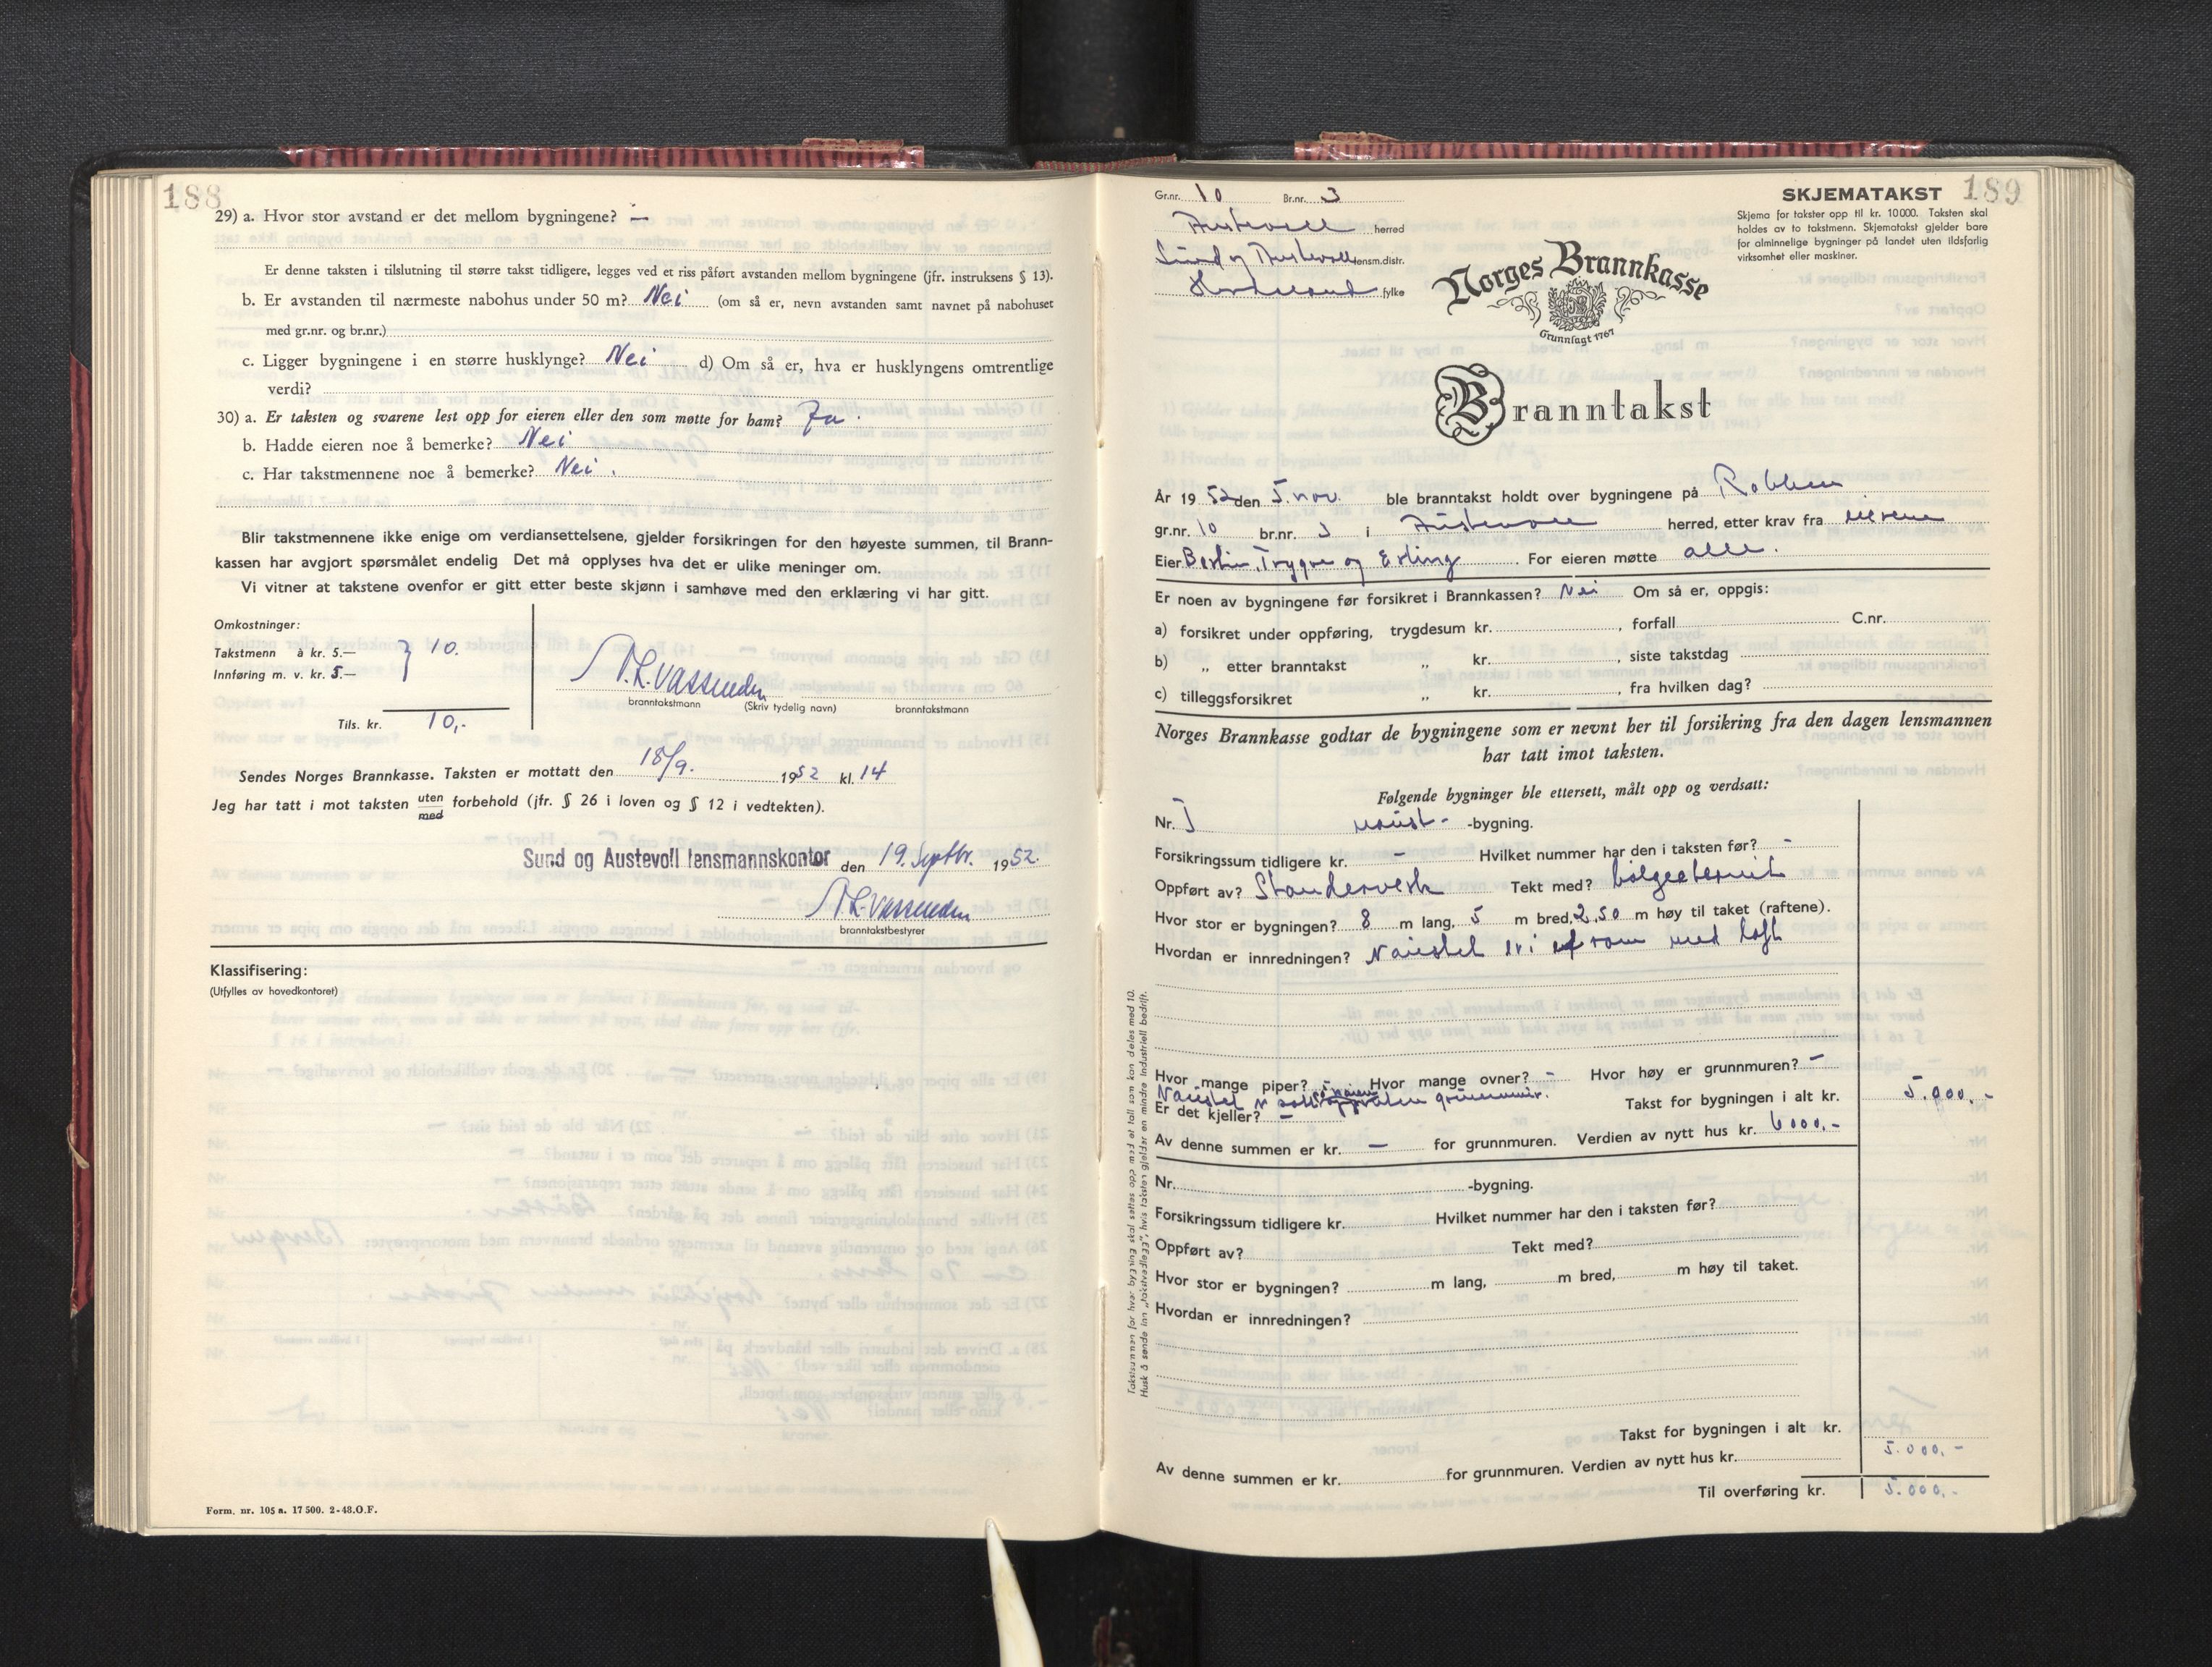 188
29) a. Hvor stor avstand er det mellom bygningene? —
Er denne taksten i tilslutning til større takst tidligere, legges ved et riss påført avstanden mellom bygningene (jfr. instruksens § 13).
b. Er avstanden til nærmeste nabohus under 50 m? Nei (om så er, nevn avstanden samt navnet på nabohuset
med gr.nr. og br.nr.)
c. Ligger bygningene i en større husklynge? Nei d) Om så er, hva er husklyngens omtrentlige
verdi?
30) a. Er taksten og svarene lest opp for eieren eller den som møtte for ham? Ja.
b. Hadde eieren noe å bemerke? Nei
c. Har takstmennene noe å bemerke? Nei.
Blir takstmennene ikke enige om verdiansettelsene, gjelder forsikringen for den høyeste summen, til Brann-
kassen har avgjort spørsmålet endelig Det må opplyses hva det er ulike meninger om.
Vi vitner at takstene ovenfor er gitt etter beste skjønn i samhøve med den erklæring vi har gitt.
Omkostninger:
Takstmenn à kr. 5.— } 10.
Innføring m. v. kr. 5.—
Tils. kr. 10,-
A.L. Vassenden
branntakstmann (Skriv tydelig navn) branntakstmann
Sendes Norges Brannkasse. Taksten er mottatt den 18/9. 1952 kl. 14
Jeg har tatt i mot taksten uten forbehold (jfr. § 26 i loven og § 12 i vedtekten).
med
Sund og Austevoll lensmannskontor den 19. Septbr. 1952.
A.L. Vassenden
branntakstbestyrer
Klassifisering:
(Utfylles av hovedkontoret)
Form. nr. 105 a. 17 500. 2-48.O.F.
Gr.nr. 10 Br.nr. 3
SKJEMATAKST 189
Austevoll herred
Sund og Austevoll lensm.distr.
Hordaland fylke
Skjema for takster opp til kr. 10000. Taksten skal
holdes av to takstmenn. Skjematakst gjelder bare
for alminnelige bygninger på landet uten ildsfarlig
virksomhet eller maskiner.
Norges Brannkasse
Grunnlagt 1767
Branntakst
År 1952 den 5. nov. ble branntakst holdt over bygningene på Robben
gr.nr. 10 br.nr. 3 i Austevoll herred, etter krav fra eierene
Eier Bertin, Trygve og Erling. For eieren møtte alle.
Er noen av bygningene før forsikret i Brannkassen? Nei Om så er, oppgis:
a) forsikret under oppføring, trygdesum kr. , forfall C.nr.
b) „ etter branntakst „ kr. , siste takstdag
c) tilleggsforsikret „ kr. , fra hvilken dag?
Norges Brannkasse godtar de bygningene som er nevnt her til forsikring fra den dagen lensmannen
har tatt imot taksten.
Følgende bygninger ble ettersett, målt opp og verdsatt:
Nr. I naust- -bygning.
Forsikringssum tidligere kr. — Hvilket nummer har den i taksten før? -
Oppført av? Standerverk Tekt med? bølgeeternit
Hvor stor er bygningen? 8 m lang, 5 m bred, 2,50 m høy til taket (raftene).
Hvordan er innredningen? Naustet er i et rom med loft
Hvor mange piper? Hvor mange ovner? - Hvor høy er grunnmuren? —
Naustet er grunnmur.
Er det kjeller? — Takst for bygningen i alt kr. 5.000,-
Av denne summen er kr. — for grunnmuren. Verdien av nytt hus kr. 6000,-
Nr. -bygning.
Forsikringssum tidligere kr. Hvilket nummer har den i taksten før?
Oppført av? Tekt med?
Hvor stor er bygningen? m lang, m bred, m høy til taket.
Hvordan er innredningen?
Takst for bygningen i alt kr.
5.000,-
Av denne summen er kr. for grunnmuren. Verdien av nytt hus kr.
Til overføring kr. 5.000,-
Takstsummen for hver bygning skal settes opp med et tall som kan deles med 10.